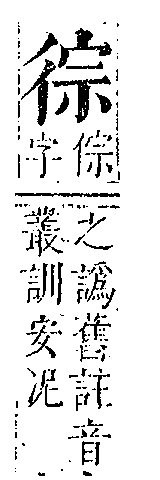 徖
倧
字
之譌舊註音
叢訓安